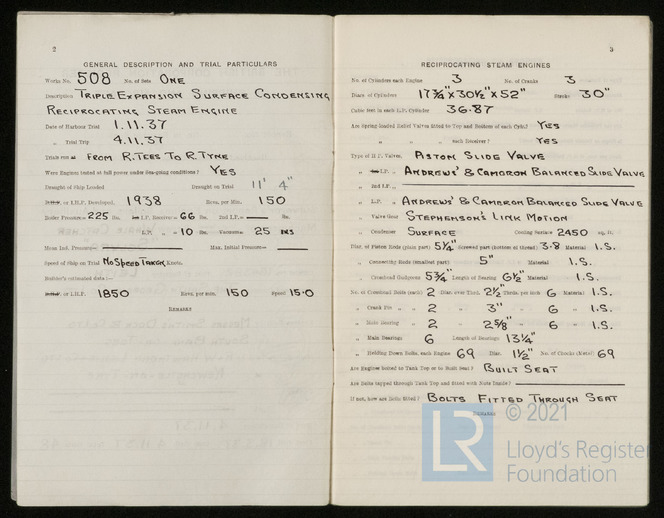 2
GENERAL DESCRIPTION AND TRIAL PARTICULARS
Works No. 508 No. of Sets ONE
Description TRIPLE EXPANSION SURFACE CONDENSING
RECIPROCATING STEAM ENGINE
Date of Harbour Trial 1.11.37
" Trial Trip 4.11.37
Trials run at FROM R.TEES TO R.TYNE
Were Engines tested to full power under Sea-going conditions? YES
Draught of Ship Loaded Draught on Trial 11' 4"
or I.H.P. Developed, 1938 Revs. per Min. 150
Boiler Pressure= 225 lbs. 1st I.P. Receiver= 66 lbs. 2nd I.P.= lbs.
L.P. " = 10 lbs. Vacuum= 25 INS
Mean Ind. Pressure= Max. Initial Pressure=
Speed of Ship on Trial NO SPEED TAKEN Knots.
Builder's estimated data:—
or I.H.P. 1850 Revs. per min. 150 Speed 15·0
REMARKS
3
RECIPROCATING STEAM ENGINES
No. of Cylinders each Engine 3 No. of Cranks 3
Diars. of Cylinders 17¾" X 30½" X 52" Stroke 30"
Cubic feet in each L.P. Cylinder 36·87
Are Spring-loaded Relief Valves fitted to Top and Bottom of each Cylr.? YES
" " " each Receiver? YES
Type of H.P. Valves, ASTON SLIDE VALVE
" 1st I.P. " ANDREWS' & CAMERON BALANCED SLIDE VALVE
" 2nd I.P. "
" L.P. " ANDREWS' & CAMERON BALANCED SLIDE VALVE
" Valve Gear STEPHENSON'S LINK MOTION
" Condenser SURFACE Cooling Surface 2450 sq. ft.
Diar. of Piston Rods (plain part) 5¼" Screwed part (bottom of thread) 3·8 Material I.S.
" Connecting Rods (smallest part) 5" Material I.S.
" Crosshead Gudgeons 5¾" Length of Bearing 6½" Material I.S.
No. of Crosshead Bolts (each) 2 Diar. over Thrd. 2½" Thrds. per inch 6 Material I.S.
" Crank Pin " " 2 " 3" " 6 " I.S.
" Main Bearing " 2 " 2⅝" " 6 " I.S.
" Main Bearings 6 Length of Bearings 13¼"
" Holding Down Bolts, each Engine 69 Diar. 1½" No. of Chocks (Metal) 69
Are Engines bolted to Tank Top or to Built Seat? BUILT SEAT
Are Bolts tapped through Tank Top and fitted with Nuts Inside?
If not, how are Bolts fitted? BOLTS FITTED THROUGH SEAT
REMARKS
LR
© 2021
Lloyd's Register
Foundation